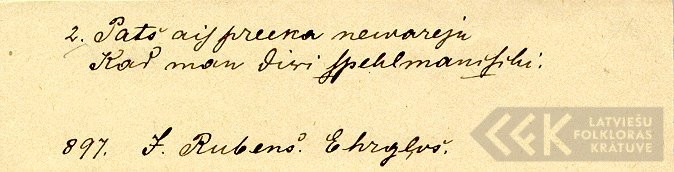 2. Pats aiſ preeka newareju
Kad man diwi ſpehlmaniſchi.
897. J. Rubens. Ehrgļos.
LATVIEŠU
FOLKLORAS
KRĀTUVE